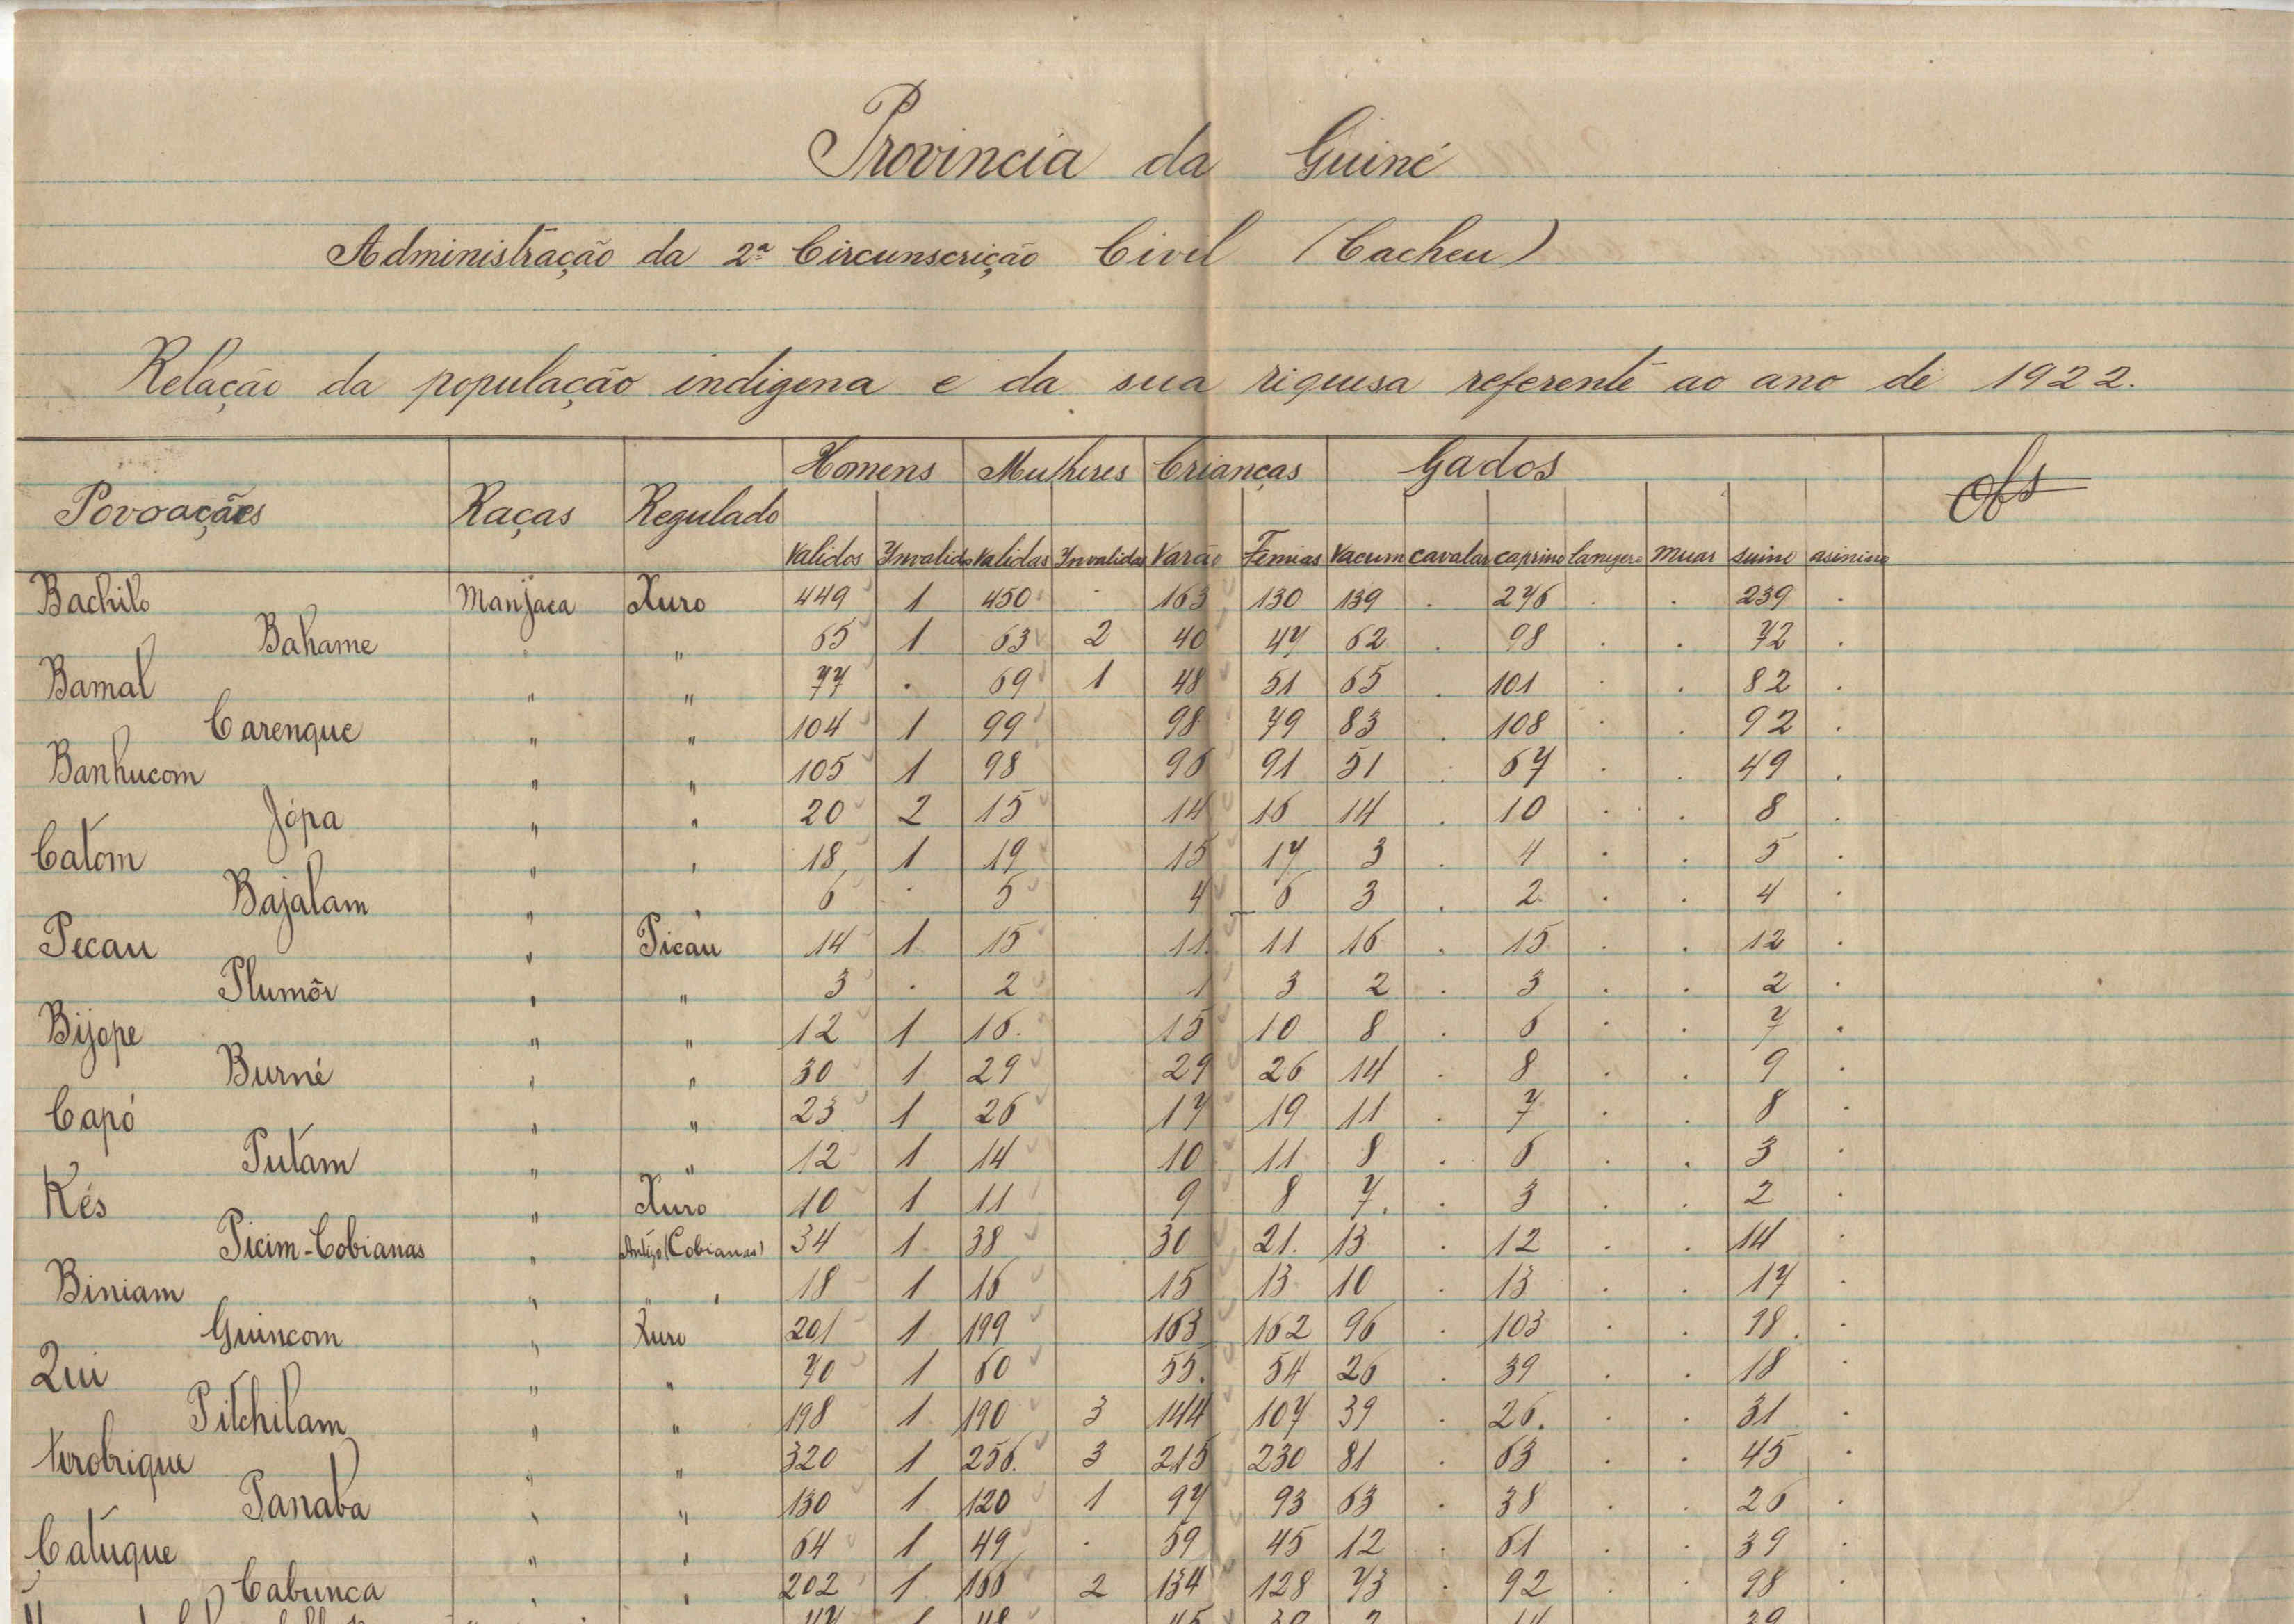 Provincia da Guiné
Administração da 2ª Circunscrição Civil (Cacheu)
Relação da população indigena e da sua riquesa referente ao ano de 1922.
Povoações Raças Regulado Homens Mulheres Crianças Gados Obs
Validos Invalidos Validas Invalidas Varão Femias Vacum cavalar caprino lanigero muar suino asinino
Bachilo Manjaca Xuro 449 1 450 . 163 130 139 . 276 . . 239 .
Bahame " " 65 1 63 2 40 47 62 . 98 . . 72 .
Bamal " " 77 . 69 1 48 51 65 . 101 . . 82 .
Carenque " " 104 1 99 98 79 83 . 108 . . 92 .
Banhucom " " 105 1 98 96 91 51 . 67 . . 49 .
Jópa " " 20 2 15 14 16 14 . 10 . . 8 .
Catom " " 18 1 19 15 17 3 . 4 . . 5 .
Bajalam " " 6 . 5 4 6 3 . 2 . . 4 .
Pecau " Picau 14 1 15 11 11 16 . 15 . . 12 .
Plumôr " " 3 . 2 1 3 2 . 3 . . 2 .
Bijope " " 12 1 16 15 10 8 . 6 . . 7 .
Burné " " 30 1 29 29 26 14 . 8 . . 9 .
Capó " " 23 1 26 17 19 11 . 7 . 8 .
Putam " " 12 1 14 10 11 8 . 6 . . 3 .
Kés " Xuro 10 1 11 9 8 7 . 3 . . 2 .
Picim-Cobianas " (Cobianas) 34 1 38 30 21 13 . 12 . . 14 .
Biniam " " 18 1 16 15 13 10 . 13 . . 17 .
Guincom " Xuro 201 1 199 163 162 96 . 103 . . 98 .
Qui " " 70 1 60 55 54 26 . 39 . . 18 .
Pitchilam " " 198 1 190 3 144 107 39 . 26 . . 31 .
" " 320 1 256 3 215 230 81 . 63 . . 45 .
Panaba " " 130 1 120 1 97 93 63 . 38 . . 26 .
Catuque " " 64 1 49 . 59 45 12 . 61 . . 39 .
Cabunca " " 202 1 166 2 134 128 73 . 92 . . 98 .